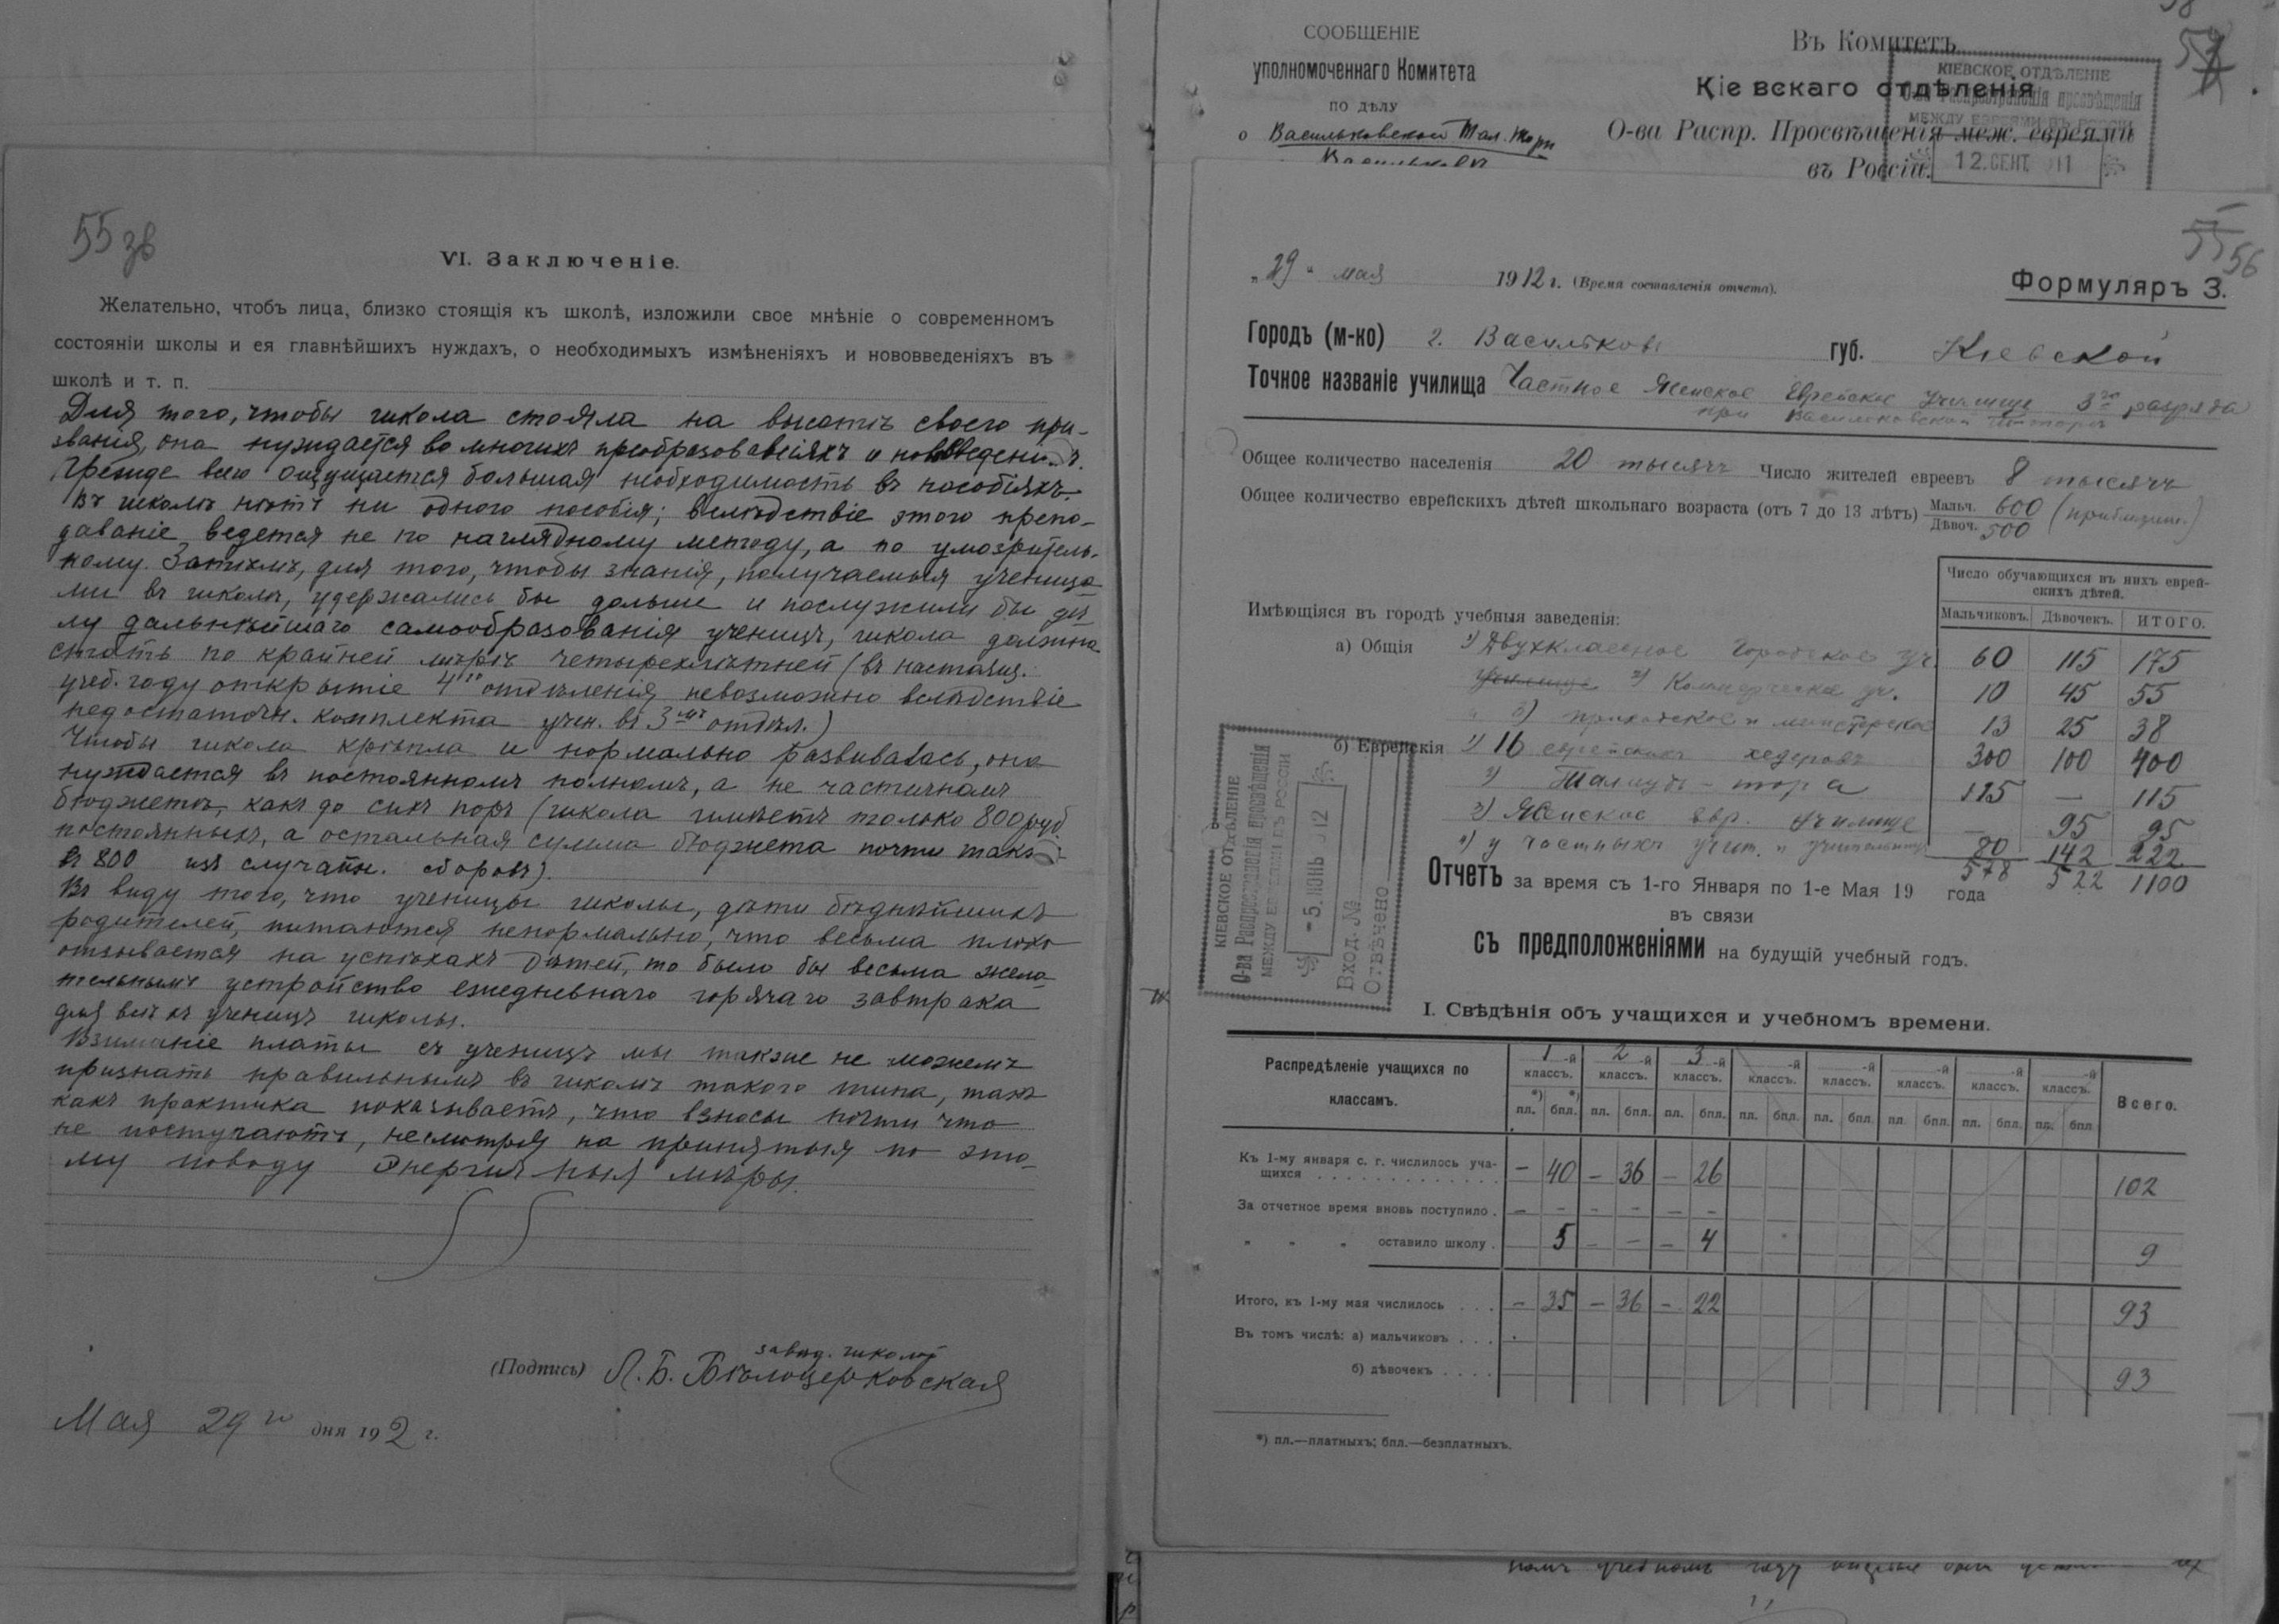 55 зв
VI. Заключеніе.
Желательно, чтобъ лица, близко стоящія къ школѣ, изложили свое мнѣніе о современномъ
состояніи школы и ея главнѣйшихъ нуждахъ, о необходимыхъ измѣненіяхъ и нововведеніяхъ въ
школѣ и т. п.
Для того, чтобы школа стояла на высотѣ своего при-
званія, она нуждается во многихъ преобразованіяхъ и нововведені
Прежде всего ощущается большая необходимость въ пособіяхъ.
Въ школѣ нѣтъ ни одного пособія; вслѣдствіе этого препо-
даваніе ведется не по наглядному методу, а по умозритель-
ному. Затѣмъ, для того, чтобы знанія, получаемыя ученица
ми въ школѣ, удержались бы дольше и послужили бы дѣ
лу дальнѣйшаго самообразованія ученицъ, школа должна
стать по крайней мѣрѣ четырехлѣтней (въ настоящ.
учеб. году открытіе 4го отдѣленія невозможно вслѣдствіе
недостаточн. комплекта учен. въ 3емъ отдѣл.)
Чтобы школа крѣпла и нормально развивалась, она
нуждается въ постоянномъ полномъ, а не частичномъ
бюджетѣ, какъ до сихъ поръ (школа имѣетъ только 800 руб.
постоянныхъ, а остальная сумма бюджета почти также
въ 800 изъ случайн. сборовъ).
Въ виду того, что ученицы школы, дѣти бѣднѣйшихъ
родителей, питаются ненормально, что весьма плохо
отзывается на успѣхахъ дѣтей, то было бы весьма жела
тельнымъ устройство ежедневнаго горячаго завтрака
для всѣхъ ученицъ школы.
Взиманіе платы съ ученицъ мы также не можемъ
признать правильнымъ въ школѣ такого типа, такъ
какъ практика показываетъ, что взносы почти что
не поступаютъ, несмотря на принятыя по это-
му поводу энергичныя мѣры.
завѣд. школой
(Подпись) Л. Б. Бѣлоцерковская
Мая 29го дня 192 г.
СООБЩЕНІЕ
уполномоченнаго Комитета
по дѣлу
о Васильковской Тал. Торы
Въ Комитетъ
Кіевскаго отдѣленія
О-ва Распр. Просвѣщенія меж. евреями
въ Россіи.
КІЕВСКОЕ ОТДѢЛЕНІЕ
О-ва Распространенія просвѣщенія
МЕЖДУ ЕВРЕЯМИ ВЪ РОССІИ
12. СЕНТ. 911
55 56
„29“ мая 1912 г. (Время составленія отчета).
Формуляръ 3.
Городъ (м-ко) г. Васильковъ губ. Кіевской
Точное названіе училища Частное Женское Еврейское Училище 3го разряда
при Васильковской
Общее количество населенія 20 тысячъ Число жителей евреевъ 8 тысячъ
Общее количество еврейскихъ дѣтей школьнаго возраста (отъ 7 до 13 лѣтъ) Мальч. 600
Дѣвоч. 500
Число обучающихся въ нихъ еврей-
скихъ дѣтей.
Имѣющіяся въ городѣ учебныя заведенія:
Мальчиковъ. Дѣвочекъ. ИТОГО.
а) Общія 1) Двухклассное Городское уч. 60 115 175
училище 2) Коммерческое уч. 10 45 55
3) приходское и министерское 13 25 38
б) Еврейскія 1) 16 еврейскихъ хедеровъ 300 100 400
2) Талмудъ-тора 115 — 115
3) Женское евр. училище — 95 95
4) у частныхъ учит. и учительницъ 80 142 222
578 522 1100
КІЕВСКОЕ ОТДѢЛЕНІЕ
О-ва Распространенія просвѣщенія
МЕЖДУ ЕВРЕЯМИ ВЪ РОССІИ
-5. ІЮНЬ 912
Вход. №
Отвѣчено
Отчетъ за время съ 1-го Января по 1-е Мая 19 года
въ связи
съ предположеніями на будущій учебный годъ.
I. Свѣдѣнія объ учащихся и учебномъ времени.
Распредѣленіе учащихся по
классамъ.
1-й классъ. 2-й классъ. 3-й классъ. -й классъ. -й классъ. -й классъ. -й классъ. -й классъ. Всего.
*) *)
пл. бпл. пл. бпл. пл. бпл. пл. бпл. пл. бпл. пл. бпл. пл. бпл. пл. бпл.
Къ 1-му января с. г. числилось уча-
щихся — 40 — 36 — 26 102
За отчетное время вновь поступило . — - - - — -
„ „ „ оставило школу . 5 - - — 4 9
Итого, къ 1-му мая числилось . . . — 35 — 36 — 22 93
Въ томъ числѣ: а) мальчиковъ . . . .
б) дѣвочекъ . . . . 93
*) пл.—платныхъ; бпл.—безплатныхъ.